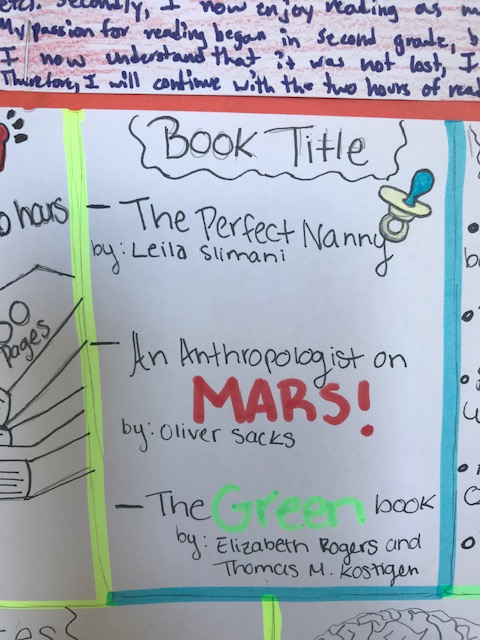 Secondly, I now enjoy reading as m
My passion for reading began in second grade, b
I now understand that it was not lost, I
Therefore, I will continue with the two hours of read
Book Title
hours
— The Perfect Nanny
by: Leila Slimani
pages
— An Anthropologist on
MARS!
by: Oliver Sacks
— The Green book
by: Elizabeth Rogers and
Thomas M. Kostigen